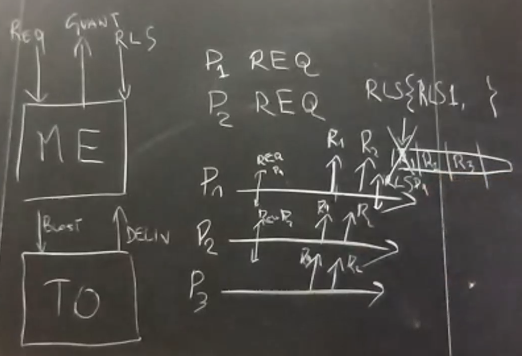 REQ GRANT RLS
ME
BCAST DELIV
TO
P1 REQ
P2 REQ
RLS{RLS1, }
R2 R3
P1 REQ P1 R1 R2 RLSP1
P2 REQ P2 R1 R2
P3 R2